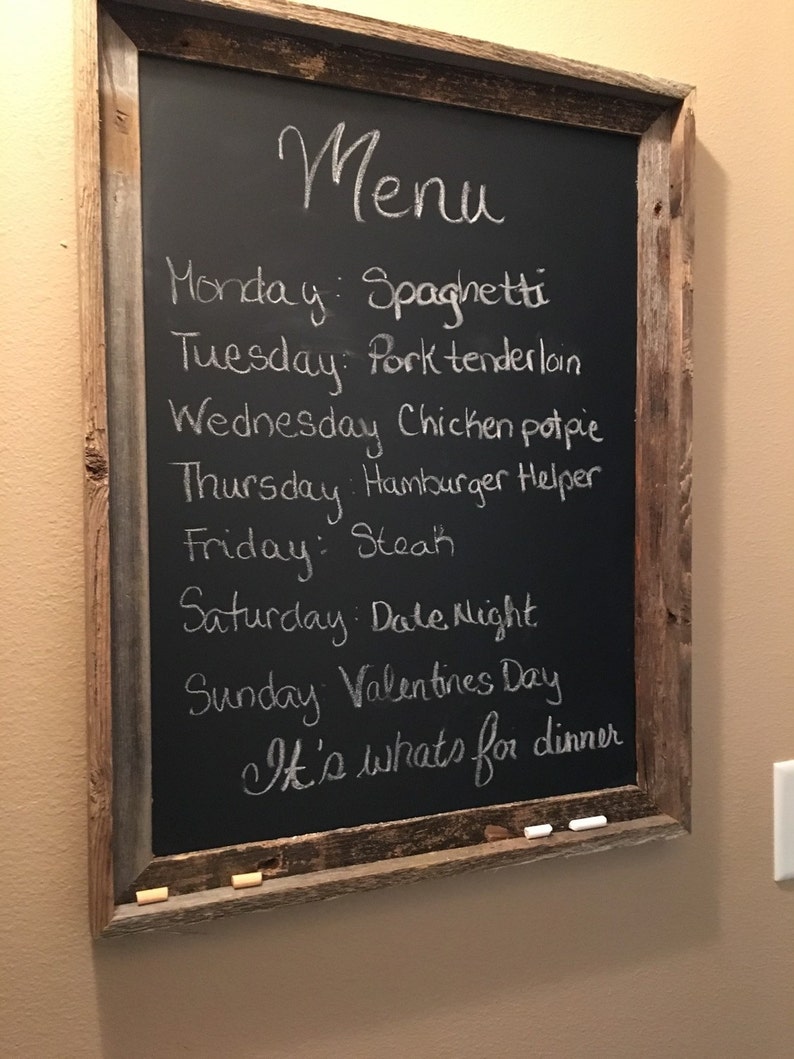 Menu
Monday: Spaghetti
Tuesday: Pork tenderloin
Wednesday Chicken potpie
Thursday: Hamburger Helper
Friday: Steak
Saturday: Date Night
Sunday: Valentines Day
It's whats for dinner